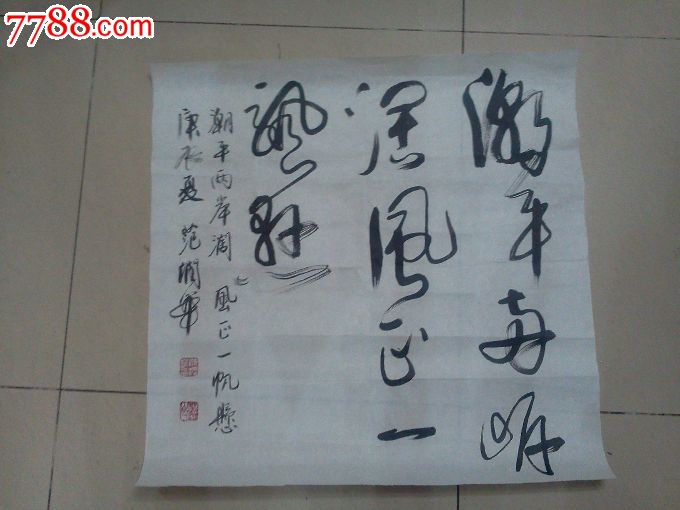 7788.com
潮平两岸
阔风正一
帆悬
潮平两岸阔 风正一帆悬
庚辰夏 范润华